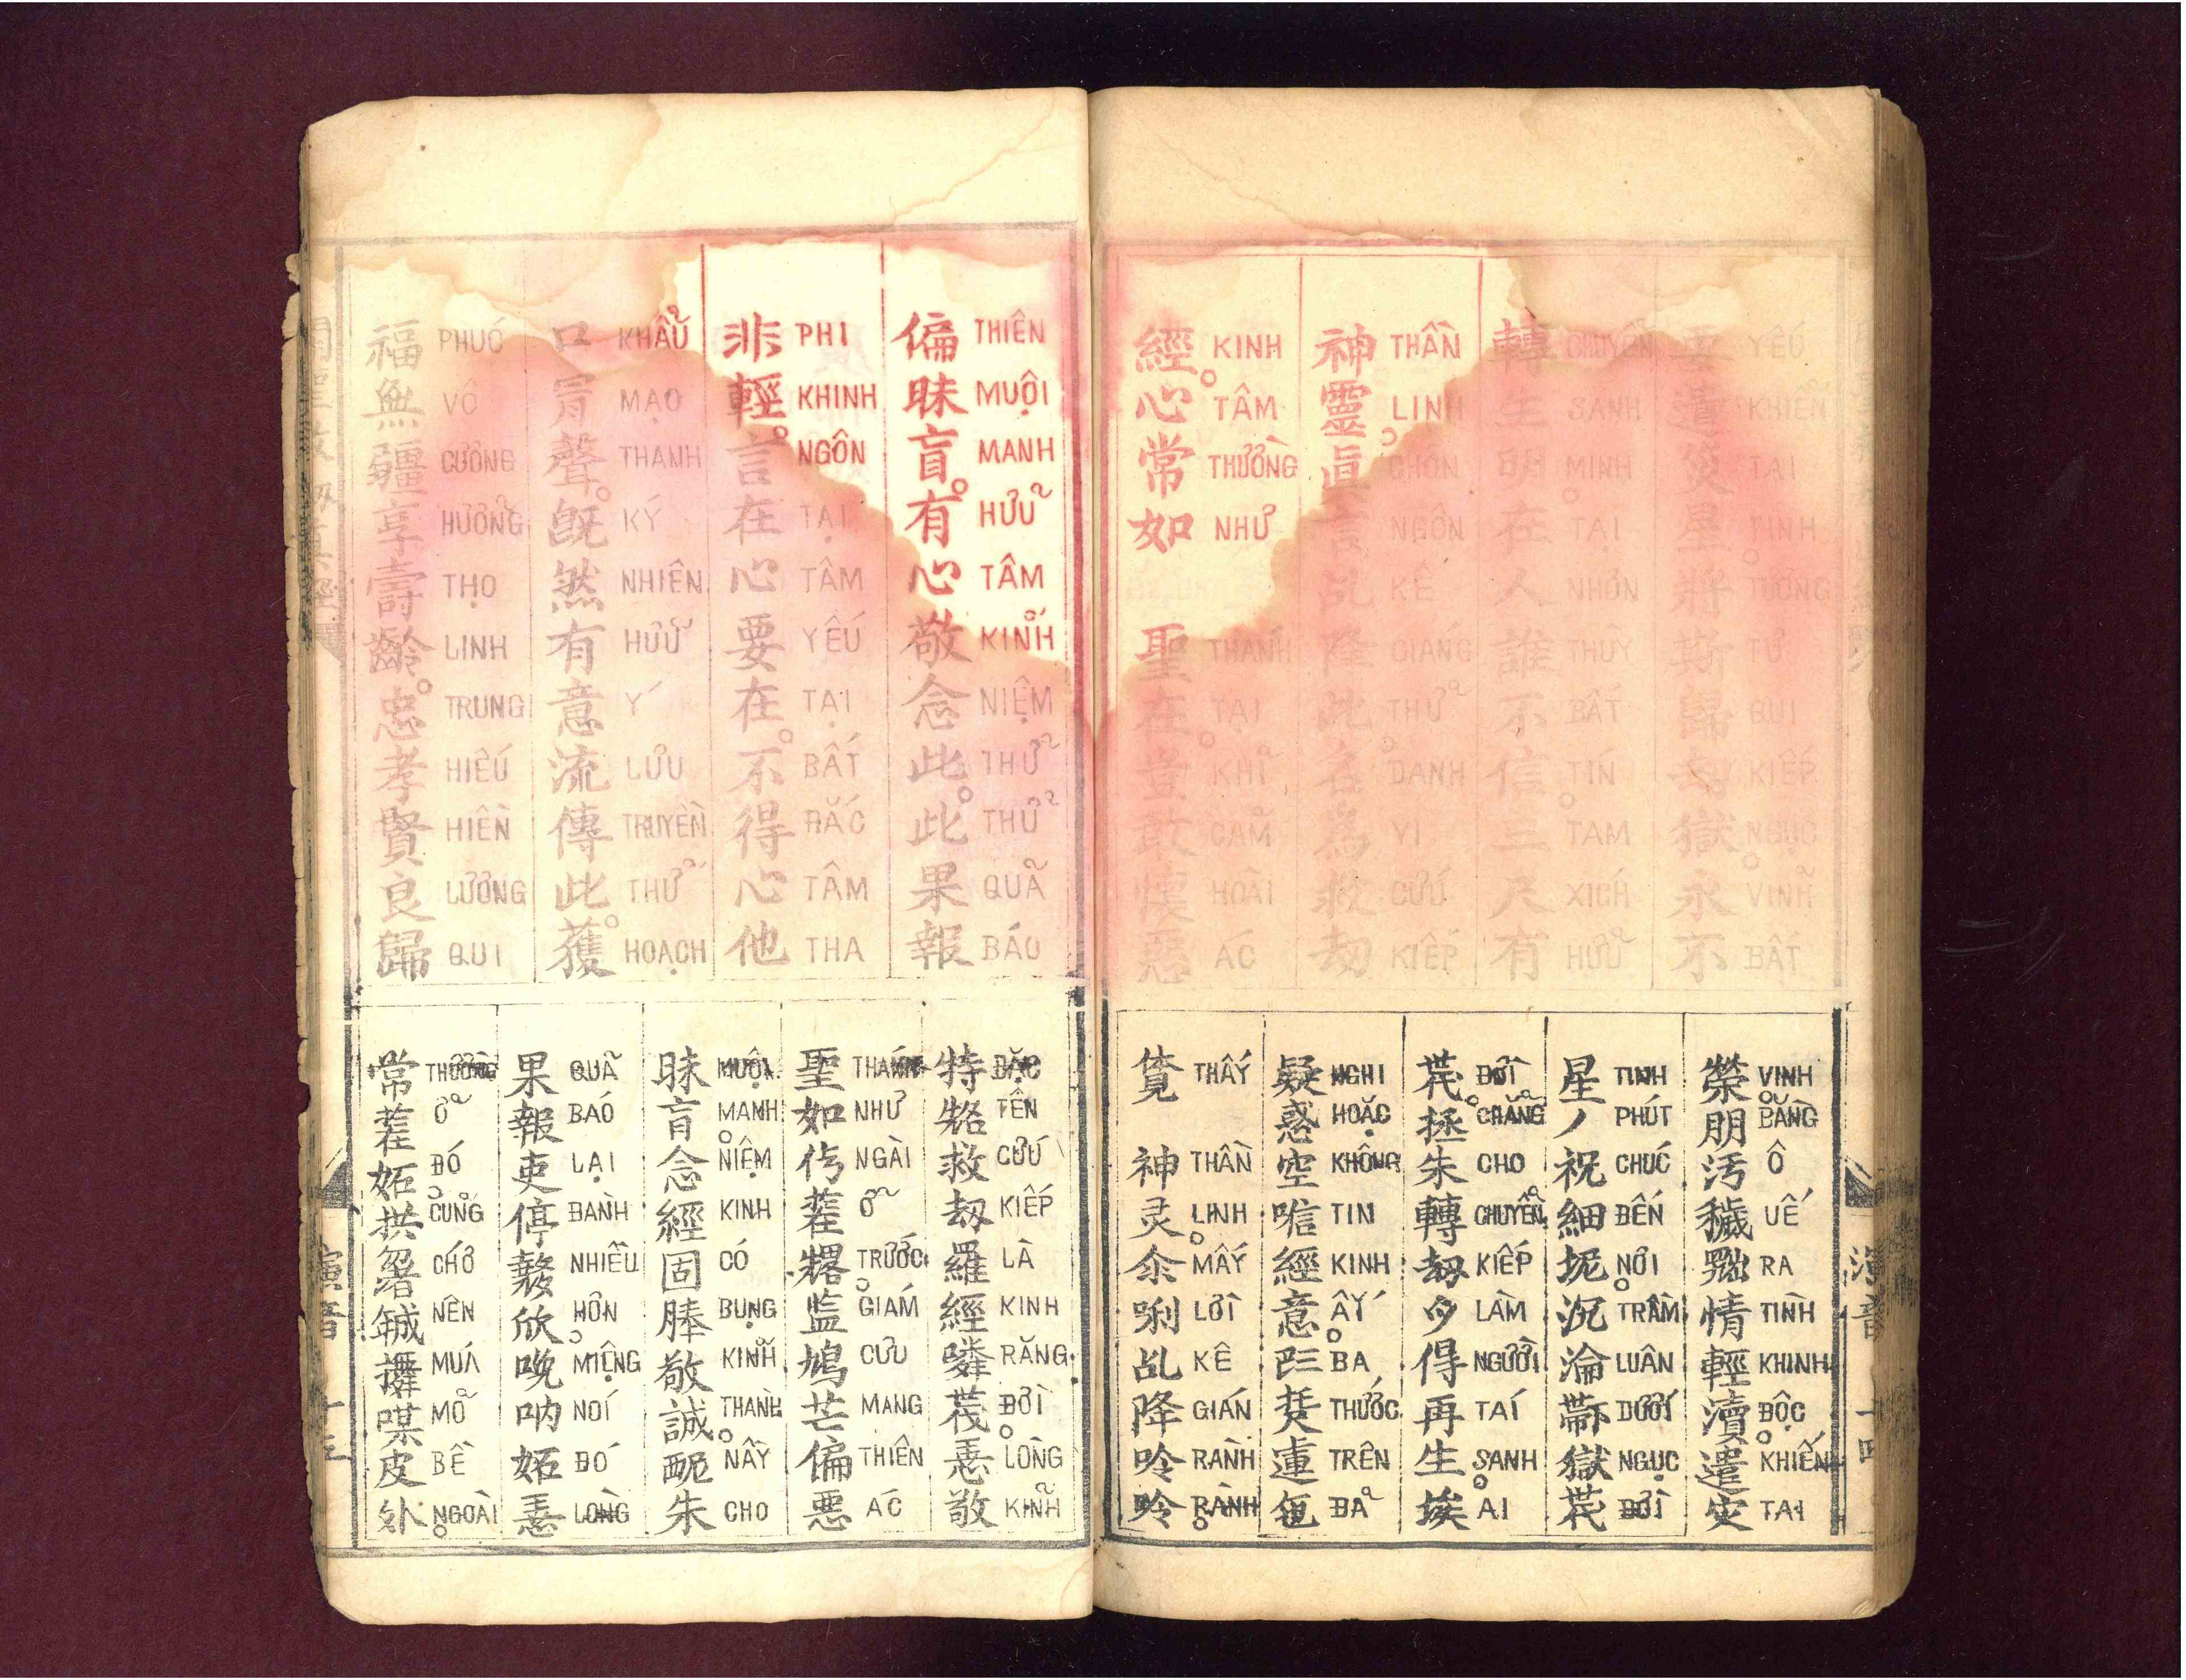 要遣災星將斯歸劫獄永不
YẾU KHIỂN TAI TINH TƯƠNG TƯ QUI KIẾP NGỤC VINH BẤT
轉生明在人誰不信三尺有
CHUYỂN SANH MINH TẠI NHƠN THÙY BẤT TÍN TAM XÍCH HỮU
神靈眞言乩降此名爲救劫
THẦN LINH CHƠN NGÔN KÊ GIÁNG THỬ DANH VI CỨU KIẾP
經心常如聖在豈敢懷惡
KINH TÂM THƯỜNG NHƯ THÁNH TẠI KHỈ CAM HOÀI ÁC
榮朋汚穢𦋦情輕瀆遣灾
VINH BẰNG Ô UẾ RA TÌNH KHINH ĐỘC KHIẾN TAI
星丿祝細坭沉淪獄
TINH PHÚT CHÚC ĐẾN NƠI TRẦM LUÂN DƯỚI NGỤC ĐỜI
拯朱轉刼得再生埃
ĐỜI CHĂNG CHO CHUYỂN KIẾP LÀM NGƯỜI TÁI SANH AI
疑惑空唁經意𠀧
NGHI HOẶC KHÔNG TIN KINH ẤY BA THƯỚC TRÊN BẢ
神灵唎乩降呤呤
THẤY THẦN LINH MẤY LỜI KÊ GIÁN RÀNH RÀNH
演音
偏昧盲有心敬念此此果報
THIÊN MUỘI MANH HỮU TÂM KINH NIỆM THỬ THỬ QUẢ BÁO
非輕言在心要在不得心他
PHI KHINH NGÔN TẠI TÂM YẾU TẠI BẤT ĐẮC TÂM THA
口冐聲旣然有意流傳此獲
KHẨU MẠO THANH KÝ NHIÊN HỮU Ý LƯU TRUYỀN THỬ HOẠCH
福無疆享壽齡忠孝賢良歸
PHUÓ VÔ CƯƠNG HƯỞNG THỌ LINH TRUNG HIẾU HIỀN LƯƠNG QUI
特救刼羅經敬
ĐẶC TÊN CỨU KIẾP LÀ KINH RĂNG ĐỜI LÒNG KINH
聖如監鳩芒偏惡
THÁNH NHƯ NGÀI Ở TRƯỚC GIÁM CƯU MANG THIÊN ÁC
昧盲念經固敬誠朱
MUỘI MANH NIỆM KINH CÓ BỤNG KINH THÀNH NẦY CHO
果報吏停欣吶妬
QUẢ BÁO LẠI ĐÀNH NHIỀU HƠN MIỆNG NÓI ĐÓ LÒNG
常妬拱皮
THƯỜNG Ở ĐÓ CŨNG CHỚ NÊN MUÁ MỎ BỀ NGOÀI
演音